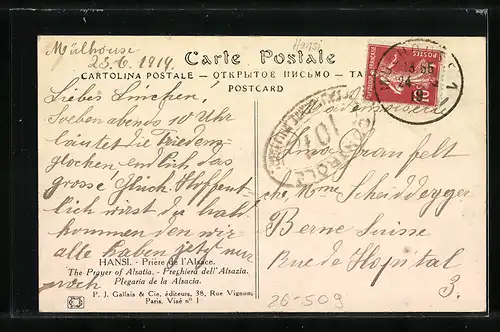 Mülhouse
23.6.1919.
Hansi
Carte Postale
CARTOLINA POSTALE — ОТКРЫТОЕ ПИСЬМО —
POSTCARD
Liebes Linchen!
Soeben abends 10 Uhr
läutet die Friedens
glocken, endlich das
grosse Glück. Hoffent
lich wirst du bald
kommen den wir
alle haben jetzt nur
noch
HANSI. - Prière de l'Alsace.
The Prayer of Alsatia. - Preghiera dell'Alsazia.
Plegaria de la Alsacia.
P. J. Gallais & Cie, éditeurs, 38, Rue Vignon,
Paris. Visé n° 1
CONTRÔLE
101
POSTES
10
Mademoiselle
Lina Granfelt
che, Mme Scheidegger
Berne Suisse
Rue de Hopital
3.
26-509